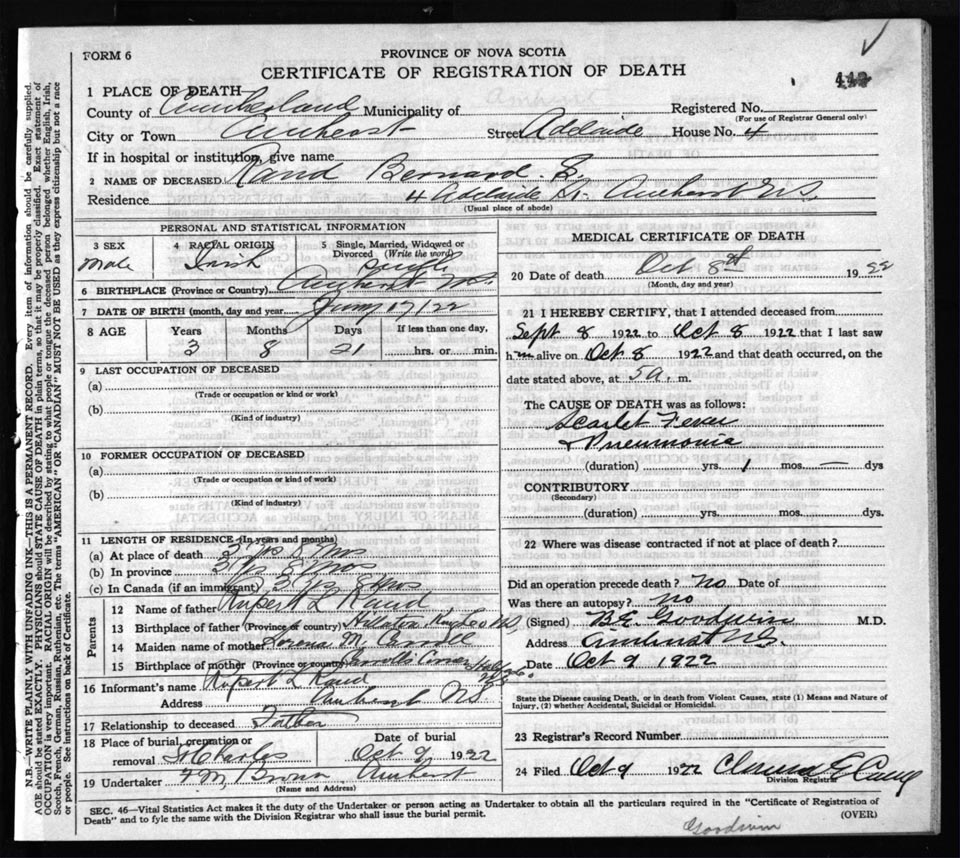 FORM 6
PROVINCE OF NOVA SCOTIA
CERTIFICATE OF REGISTRATION OF DEATH
1 PLACE OF DEATH—
County of Cumberland Municipality of
Registered No.
(For use of Registrar General only)
City or Town Amherst Street Adelaide House No. 4
If in hospital or institution, give name
2 NAME OF DECEASED. Rand Bernard
Residence 4 Adelaide St. Amherst N.S.
(Usual place of abode)
PERSONAL AND STATISTICAL INFORMATION
3 SEX 4 RACIAL ORIGIN 5 Single, Married, Widowed or Divorced (Write the word)
Male Irish Single
6 BIRTHPLACE (Province or Country) Amherst N.S.
7 DATE OF BIRTH (month, day and year) 17/22
8 AGE Years Months Days If less than one day,
3 8 21 hrs. or min.
9 LAST OCCUPATION OF DECEASED
(a)
(Trade or occupation or kind or work)
(b)
(Kind of industry)
10 FORMER OCCUPATION OF DECEASED
(a)
(Trade or occupation or kind of work)
(b)
(Kind of industry)
11 LENGTH OF RESIDENCE (In years and months)
(a) At place of death 3 yrs 8 Mos
(b) In province 3 yrs 8 Mos
(c) In Canada (if an immigrant) 3 yrs 8 Mos
Parents
12 Name of father Rupert L Rand
13 Birthplace of father (Province or country) N.S.
14 Maiden name of mother M.
15 Birthplace of mother (Province or country) Corner
16 Informant's name Rupert L Rand
Address Amherst N.S.
17 Relationship to deceased Father
18 Place of burial, cremation or removal St Charles
Date of burial Oct 9 1922
19 Undertaker Brown Amherst
(Name and Address)
MEDICAL CERTIFICATE OF DEATH
20 Date of death Oct 8 1922
(Month, day and year)
21 I HEREBY CERTIFY, that I attended deceased from
Sept 8 1922 to Oct 8 1922 that I last saw
him alive on Oct 8 1922 and that death occurred, on the
date stated above, at 5 a. m.
The CAUSE OF DEATH was as follows:
Scarlet Fever
& Pneumonia
(duration) yrs. 1 mos. — dys
CONTRIBUTORY
(Secondary)
(duration) yrs. mos. dys
22 Where was disease contracted if not at place of death?
Did an operation precede death? No Date of
Was there an autopsy? No
(Signed) B.E. Goodwin M.D.
Address Amherst N.S.
Date Oct 9 1922
State the Disease causing Death, or in death from Violent Causes, state (1) Means and Nature of Injury, (2) whether Accidental, Suicidal or Homicidal.
23 Registrar's Record Number
24 Filed Oct 9 1922
Division Registrar
SEC. 46—Vital Statistics Act makes it the duty of the Undertaker or person acting as Undertaker to obtain all the particulars required in the "Certificate of Registration of
Death" and to fyle the same with the Division Registrar who shall issue the burial permit.
(OVER)
Goodwin
N.B.—WRITE PLAINLY WITH UNFADING INK—THIS IS A PERMANENT RECORD. Every item of information should be carefully supplied.
AGE should be stated EXACTLY. PHYSICIANS should STATE CAUSE OF DEATH in plain terms, so that it may be properly classified. Exact statement of
OCCUPATION is very important. RACIAL ORIGIN will be described by stating to what people or tongue the deceased person belonged whether English, Irish,
Scotch, French, German, Russian, Ruthenian, etc. The terms "AMERICAN" OR "CANADIAN" MUST NOT BE USED as they express citizenship but not a race
or people. See instructions on back of Certificate.